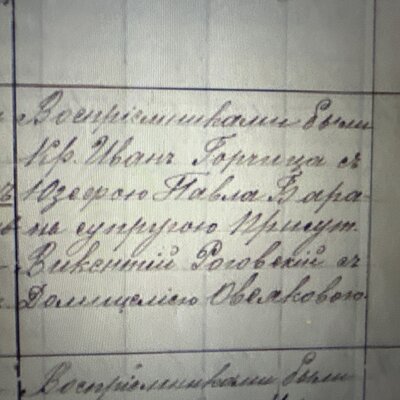 Воспріемниками были
Кр. Иванъ Горчица съ
Юзефою Павла Вара-
на супругою Присут.
Викентій Роговскій съ
Домицелією Овсяковою
Воспріемниками были